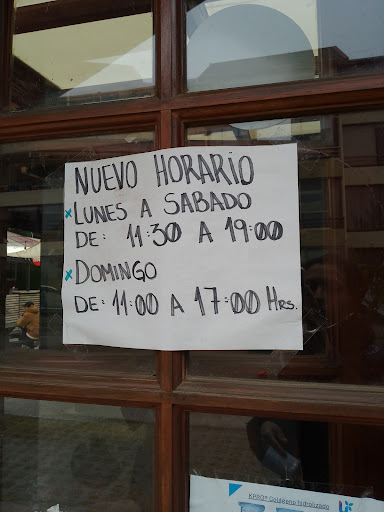 NUEVO HORARIO
*LUNES A SABADO
DE: 11:30 A 19:00
*DOMINGO
DE: 11:00 A 17:00 HRS.
KPRO® Colágeno hidrolizado